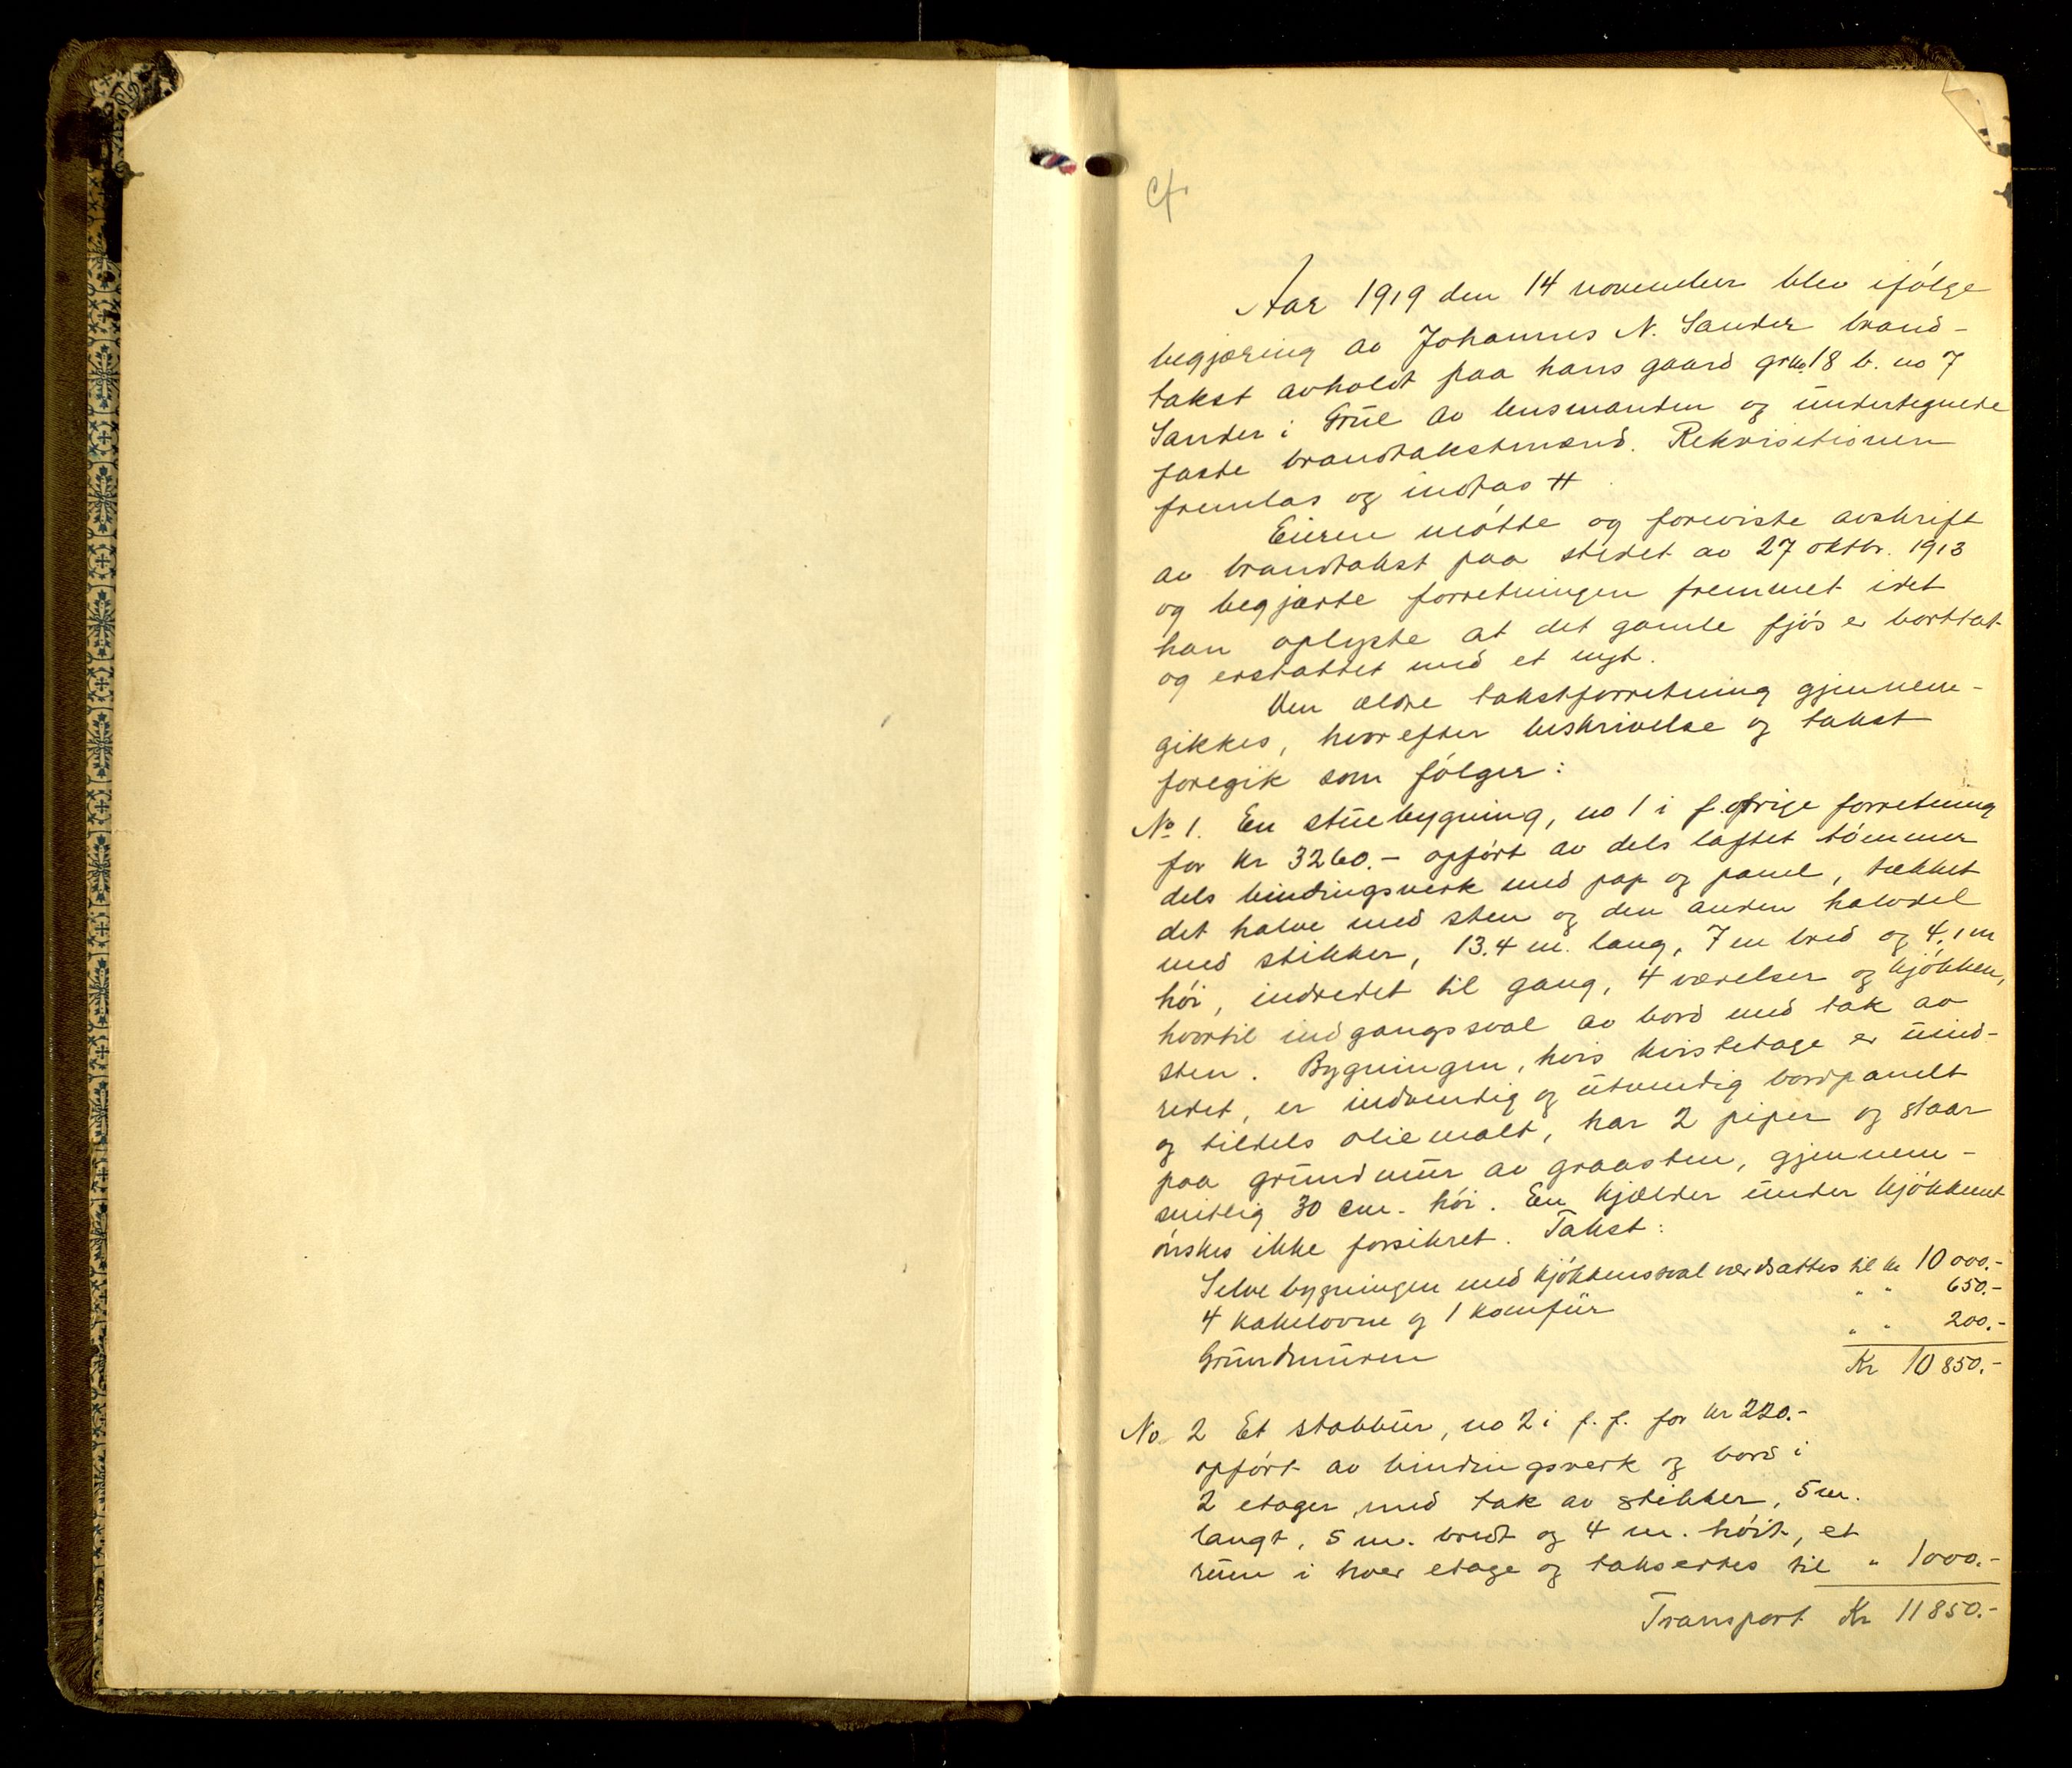 cf.
Aar 1919 den 14 november blev ifølge
begjæring av Johannes N. Sander brand-
takst avholdt paa hans gaard grno. 18 b. no 7
Sander i Grue av lensmanden og undertegnede
faste brandtakstmænd. Rekvisitionen
fremlas og indtas #
Eieren møtte og foreviste avskrift
av brandtakst paa stedet av 27 oktbr. 1913
og begjærte forretningen fremmet idet
han oplyste at det gamle fjøs er borttat
og erstattet med et nyt.
Den ældre takstforretning gjennem-
gikkes, hvorefter beskrivelse og takst
foregik som følger:
No 1. En stuebygning, no 1 i f. forretning
for kr 3260.- opført av dels laftet tømmer
dels bindingsverk med pap og panel, tækket
det halve med sten og den anden halvdel
med stikker, 13.4 m. lang, 7 m bred og 4,1 m
høi, indredet til gang, 4 værelser og kjøkken,
hvortil indgangssval av bord med tak av
sten. Bygningen, hvis kvistetage er uind-
redet, er indvendig og utvendig bordpanelt
og tildels oliemalt, har 2 piper og staar
paa grundmur av graasten, gjennem-
snitlig 30 cm. høi. En kjælder under kjøkkenet
ønskes ikke forsikret. Takst:
Selve bygningen med kjøkkensval værdsattes til kr 10 000.-
4 kakelovne og 1 komfur " " 650.-
Grundmuren " " 200.-
Kr 10 850.-
No 2 Et stabbur, no 2 i f. f. for kr 220.-
opført av bindingsverk og bord i
2 etager med tak av stikker, 5 m.
langt, 5 m. bredt og 4 m. høit, et
rum i hver etage og takserttes til " 1000.-
Transport Kr 11 850.-